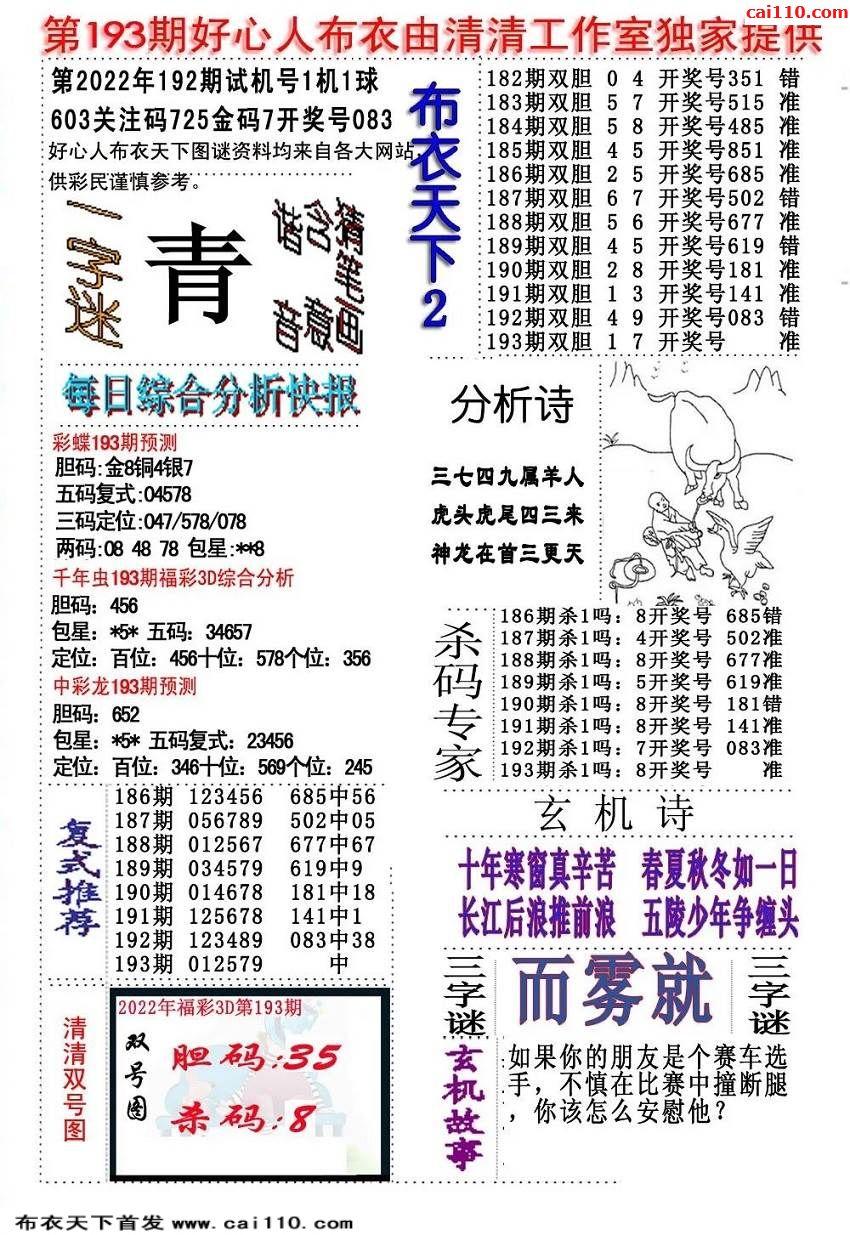 cai110.com
第193期好心人布衣由清清工作室独家提供
第2022年192期试机号1机1球
603关注码725金码7开奖号083
好心人布衣天下图谜资料均来自各大网站,
供彩民谨慎参考。
一字迷
青
猜笔画
含意
谐音
布衣天下2
182期双胆 0 4 开奖号351 错
183期双胆 5 7 开奖号515 准
184期双胆 5 8 开奖号485 准
185期双胆 4 5 开奖号851 准
186期双胆 2 5 开奖号685 准
187期双胆 6 7 开奖号502 错
188期双胆 5 6 开奖号677 准
189期双胆 4 5 开奖号619 错
190期双胆 2 8 开奖号181 准
191期双胆 1 3 开奖号141 准
192期双胆 4 9 开奖号083 错
193期双胆 1 7 开奖号 准
每日综合分析快报
彩蝶193期预测
胆码:金8铜4银7
五码复式:04578
三码定位:047/578/078
两码:08 48 78 包星:**8
千年虫193期福彩3D综合分析
胆码：456
包星：*5* 五码：34657
定位：百位：456十位：578个位：356
中彩龙193期预测
胆码：652
包星：*5* 五码复式：23456
定位：百位：346十位：569个位：245
分析诗
三七四九属羊人
虎头虎尾四三来
神龙在首三更天
杀码专家
186期杀1吗：8开奖号 685错
187期杀1吗：4开奖号 502准
188期杀1吗：8开奖号 677准
189期杀1吗：5开奖号 619准
190期杀1吗：8开奖号 181错
191期杀1吗：8开奖号 141准
192期杀1吗：7开奖号 083准
193期杀1吗：8开奖号 准
复式推荐
186期 123456 685中56
187期 056789 502中05
188期 012567 677中67
189期 034579 619中9
190期 014678 181中18
191期 125678 141中1
192期 123489 083中38
193期 012579 中
玄机诗
十年寒窗真辛苦 春夏秋冬如一日
长江后浪推前浪 五陵少年争缠头
三字谜
而雾就
三字谜
清清双号图
2022年福彩3D第193期
双号图
胆码:35
杀码:8
玄机故事
如果你的朋友是个赛车选
手，不慎在比赛中撞断腿
，你该怎么安慰他？
布衣天下首发 www.cai110.com